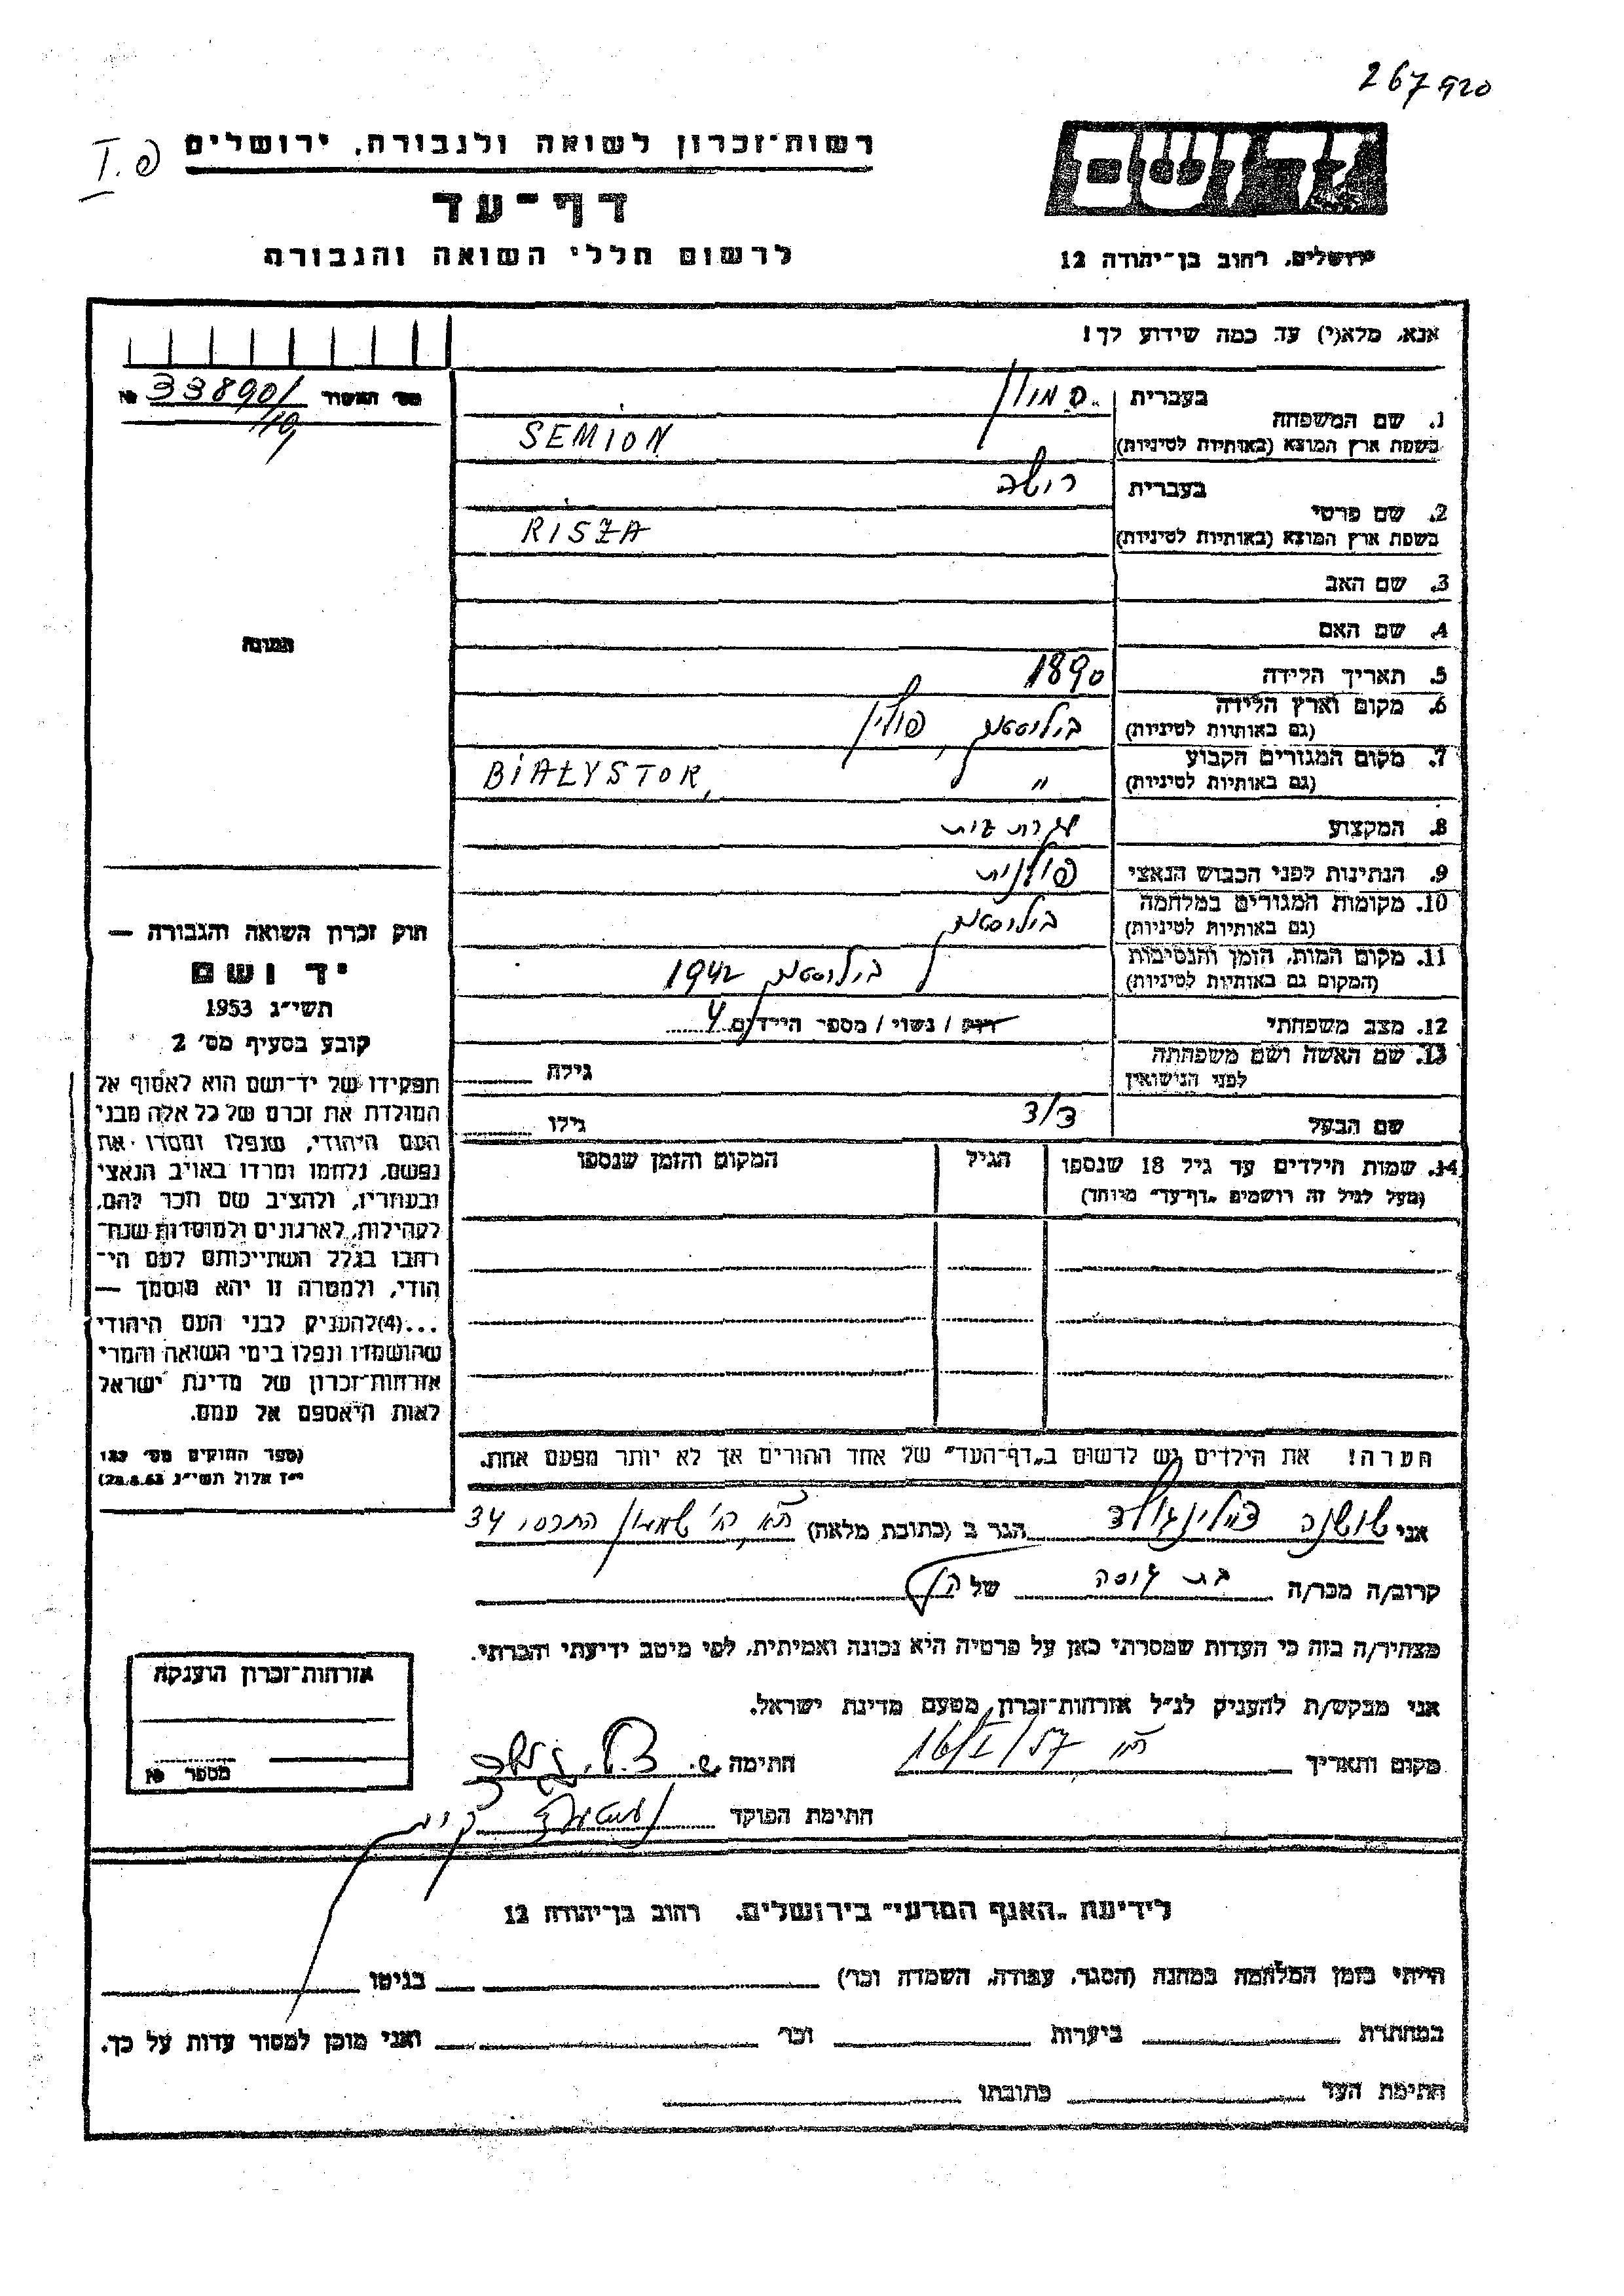 267920
פ. I
רשות־זכרון לשואה ולגבורה, ירושלים
דף־עד
לרשום חללי השואה והגבורה
ידושם
ירושלים, רחוב בן־יהודה 12
אנא, מלא(י) עד כמה שידוע לך!
מס׳ האשור 33890/ №
/10
1. שם המשפחה
בעברית
בשפת ארץ המוצא (באותיות לטיניות)
SEMION
2. שם פרטי
בעברית
בשפת ארץ המוצא (באותיות לטיניות)
RISZA
3. שם האב
4. שם האם
תמונה
5. תאריך הלידה 1890
6. מקום וארץ הלידה
(גם באותיות לטיניות)
ביליסטוק, פולין
7. מקום המגורים הקבוע
(גם באותיות לטיניות)
" BIAŁYSTOK,
8. המקצוע עקרת בית
9. הנתינות לפני הכבוש הנאצי פולנית
10. מקומות המגורים במלחמה
(גם באותיות לטיניות)
ביליסטוק
11. מקום המות, הזמן והנסיבות
(המקום גם באותיות לטיניות)
ביליסטוק 1942
12. מצב משפחתי רווק / נשוי / מספר הילדים 4
13. שם האשה ושם משפחתה
לפני הנישואין
גילה
שם הבעל דוד גילו
14. שמות הילדים עד גיל 18 שנספו הגיל המקום והזמן שנספו
(מעל לגיל זה רושמים „דף־עד" מיוחד)
הערה! את הילדים יש לרשום ב„דף־העד" של אחד ההורים אך לא יותר מפעם אחת.
חוק זכרון השואה והגבורה —
יד ושם
תשי״ג 1953
קובע בסעיף מס׳ 2
תפקידו של יד־ושם הוא לאסוף אל
המולדת את זכרם של כל אלה מבני
העם היהודי, שנפלו ומסרו את
נפשם, נלחמו ומרדו באויב הנאצי
ובעוזריו, ולהציב שם וזכר להם,
לקהילות, לארגונים ולמוסדות שנח־
רבו בגלל השתייכותם לעם הי־
הודי, ולמטרה זו יהא מוסמך —
...(4)להעניק לבני העם היהודי
שהושמדו ונפלו בימי השואה והמרי
אזרחות־זכרון של מדינת ישראל
לאות היאספם אל עמם.
(ספר החוקים מס׳ 132
י״ז אלול תשי״ג 28.8.53)
אני שושנה הגר ב (כתובת מלאה) ת״א, רח׳ שמעון התרסי 34
קרוב/ה מכר/ה בת דודה של הנ״ל
מצהיר/ה בזה כי העדות שמסרתי כאן על פרטיה היא נכונה ואמיתית, לפי מיטב ידיעתי והכרתי.
אני מבקש/ת להעניק לנ״ל אזרחות־זכרון מטעם מדינת ישראל.
מקום ותאריך ת״א 16/I/57 חתימה
חתימת הפוקד
אזרחות־זכרון הוענקה
מספר №
לידיעת „האגף המדעי" בירושלים, רחוב בן־יהודה 12
הייתי בזמן המלחמה במחנה (הסגר, עבודה, השמדה וכו׳) בגיטו
במחתרת ביערות וכו׳ ואני מוכן למסור עדות על כך.
חתימת העד כתובתו